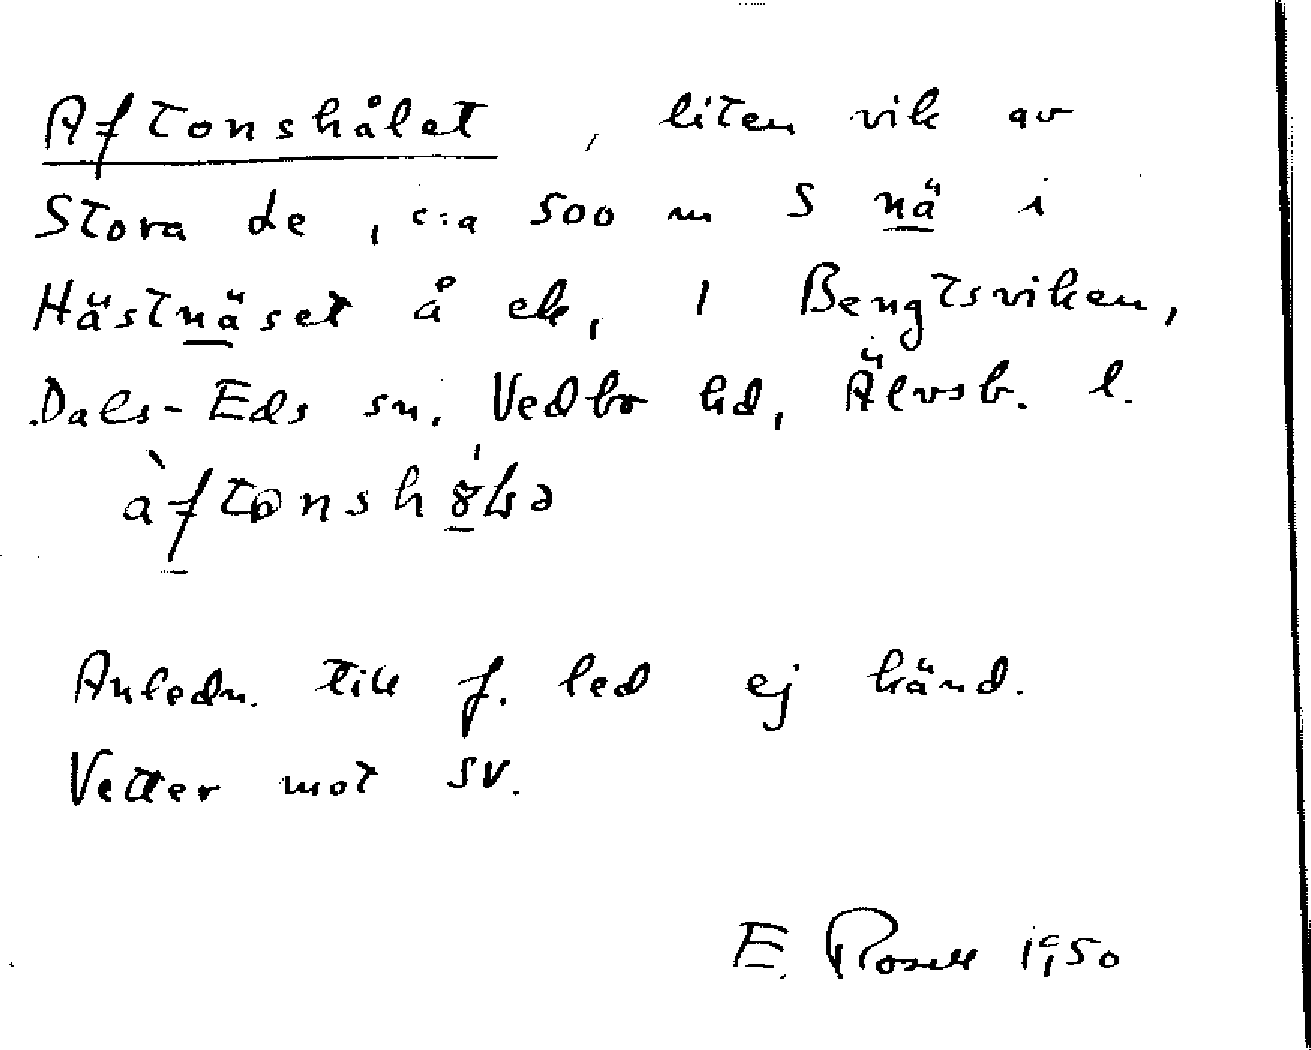 Aftonshålet, liten vik av
Stora Le, c:a 500 m S nä i
Hästnäset å ek, 1 Bengtsviken,
Dals-Eds sn. Vedbo hd, Älvsb. l.
Anledn. till f. led ej känd.
Vetter mot SV.
E. Rosell 1950